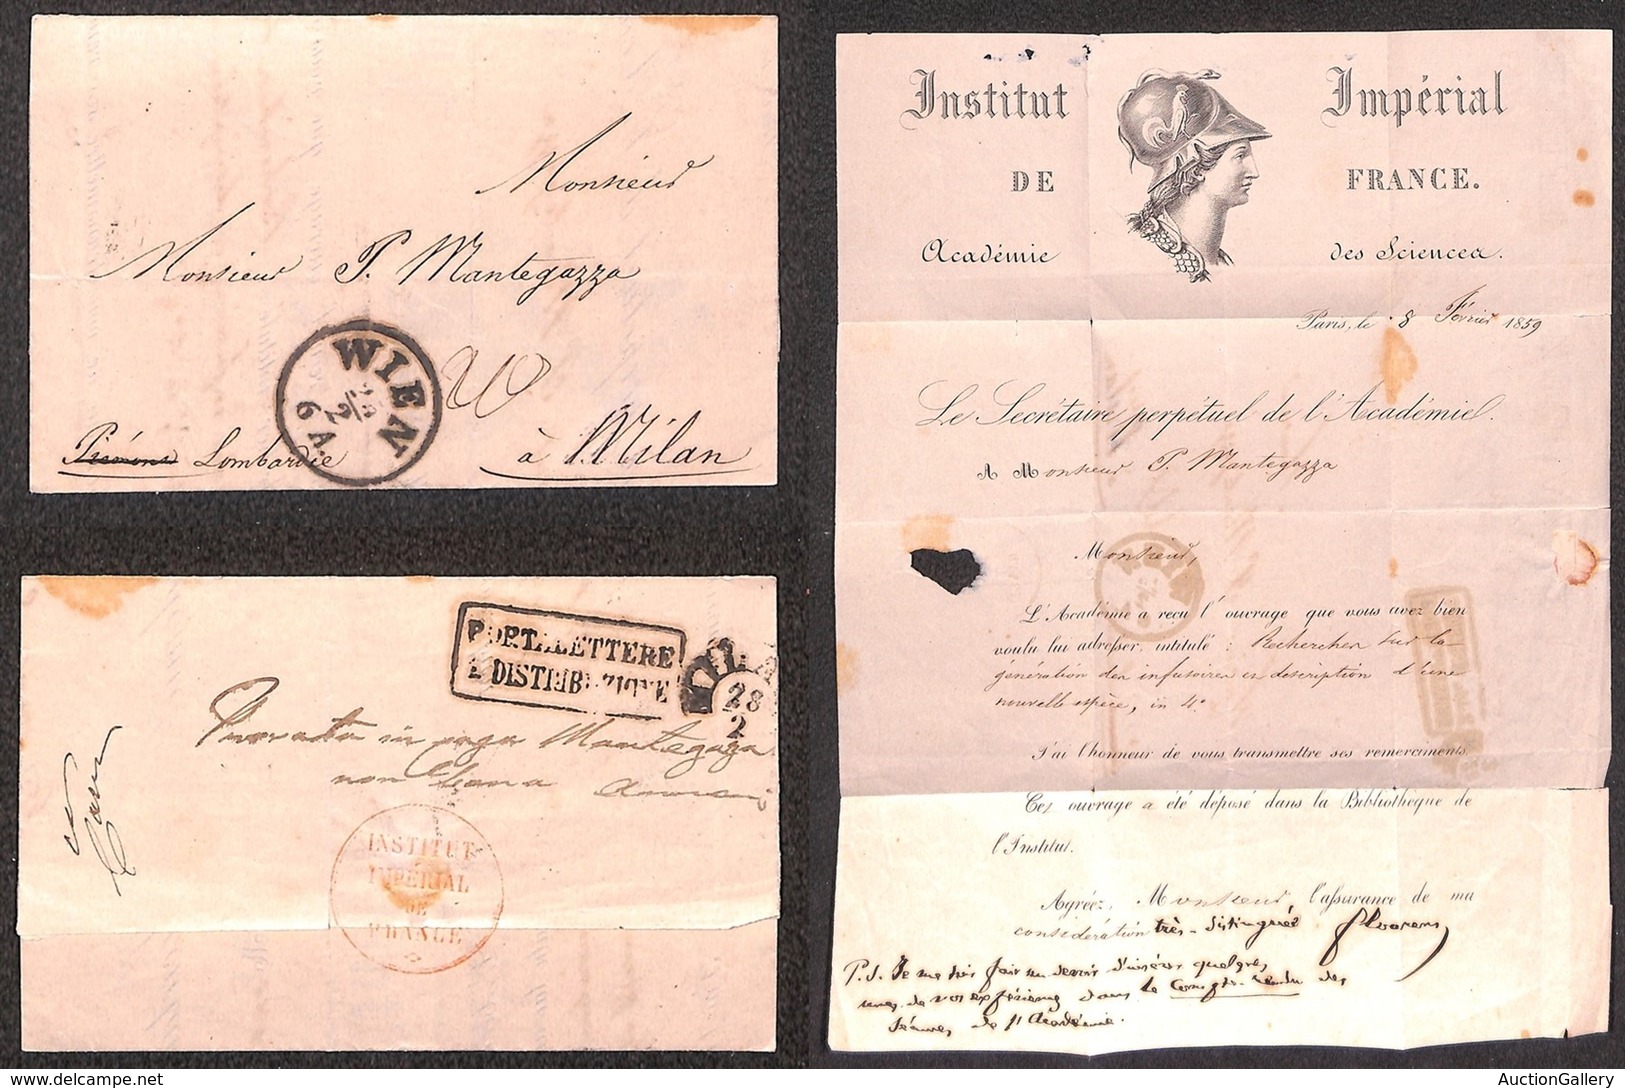 Monsieur
Monsieur P. Mantegazza
WIEN
2
6 A.
20
Piémont Lombardie
à Milan
PORTALETTERE
DISTRIBUZIONE
28
2
in Mantegazza
non
INSTITUT
IMPÉRIAL
DE
FRANCE
Institut Impérial
DE FRANCE.
Académie des Sciences.
Paris, le 8 Février 1859
Le Secrétaire perpétuel de l'Académie.
A Monsieur P. Mantegazza
Monsieur,
L'Académie a reçu l'ouvrage que vous avez bien
voulu lui adresser, intitulé : Recherches sur la
génération des infusoires et description d'une
nouvelle espèce, in 4°.
J'ai l'honneur de vous transmettre ses remercîments.
Cet ouvrage a été déposé dans la Bibliothèque de
l'Institut.
Agréez, Monsieur, l'assurance de ma
considération très-distinguée Flourens
P.S. Je me suis fait un devoir d'insérer quelques
unes de vos expériences dans le Compte-rendu des
séances de l'Académie.
AuctionGallery